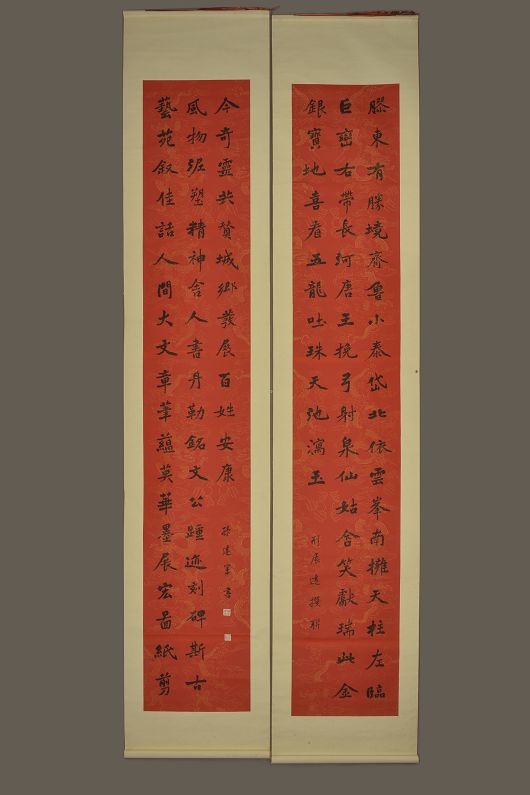 膠東有勝境齊魯小泰岱北依雲峯南擁天柱左臨
巨巒右帶長河唐王挽弓射泉仙姑含笑獻瑞此金
銀寶地喜看五龍吐珠天池瀉玉
撰聯
藝苑叙佳話人間大文章筆蘊英華墨展宏圖紙剪
風物泥塑精神舍人書丹勒銘文公踵迹刻碑斯古
今奇靈共贊城鄉發展百姓安康
孫建軍書